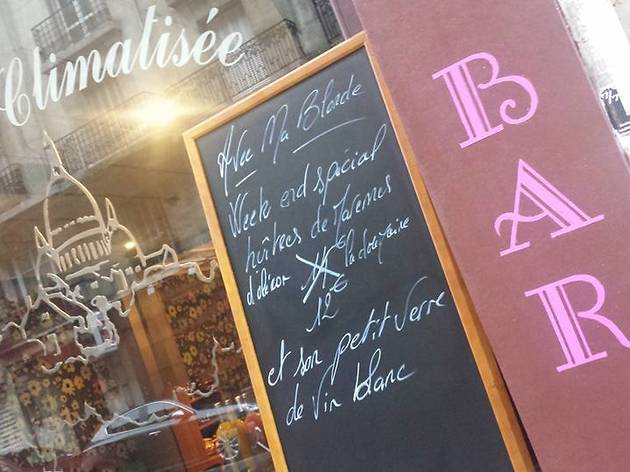 Climatisée
Avec Ma Blonde
Week end spécial
huîtres de Marennes
d'oléron 14€ la douzaine
12€
et son petit verre
de vin blanc
BAR